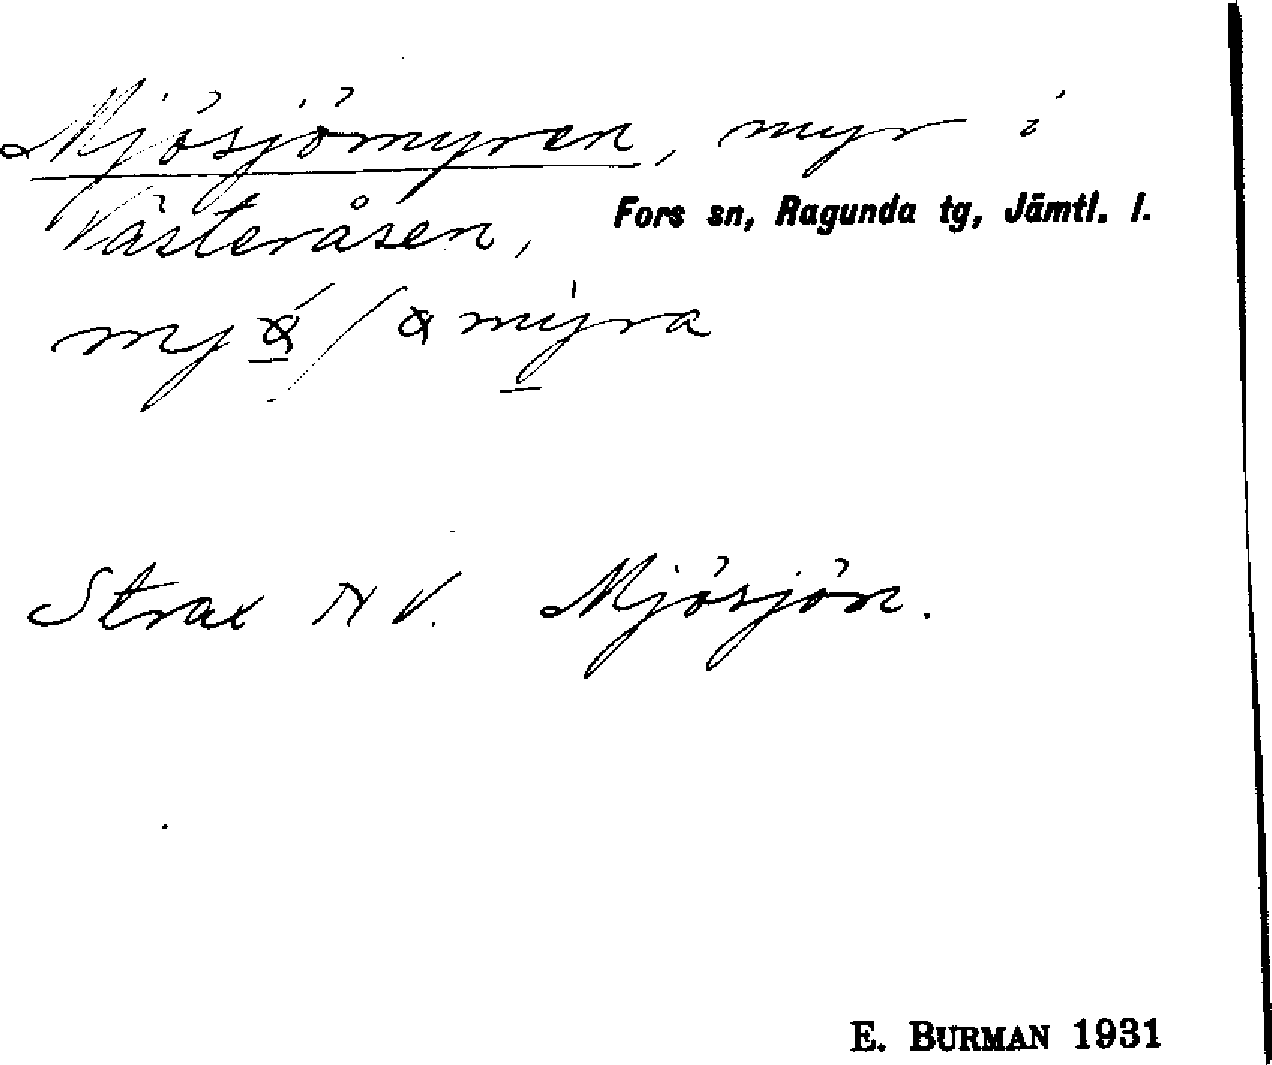 Mjösjömyren, myr i
Västeråsen, Fors sn, Ragunda tg, Jämtl. l.
Strax NV. Mjösjön.
E. BURMAN 1931